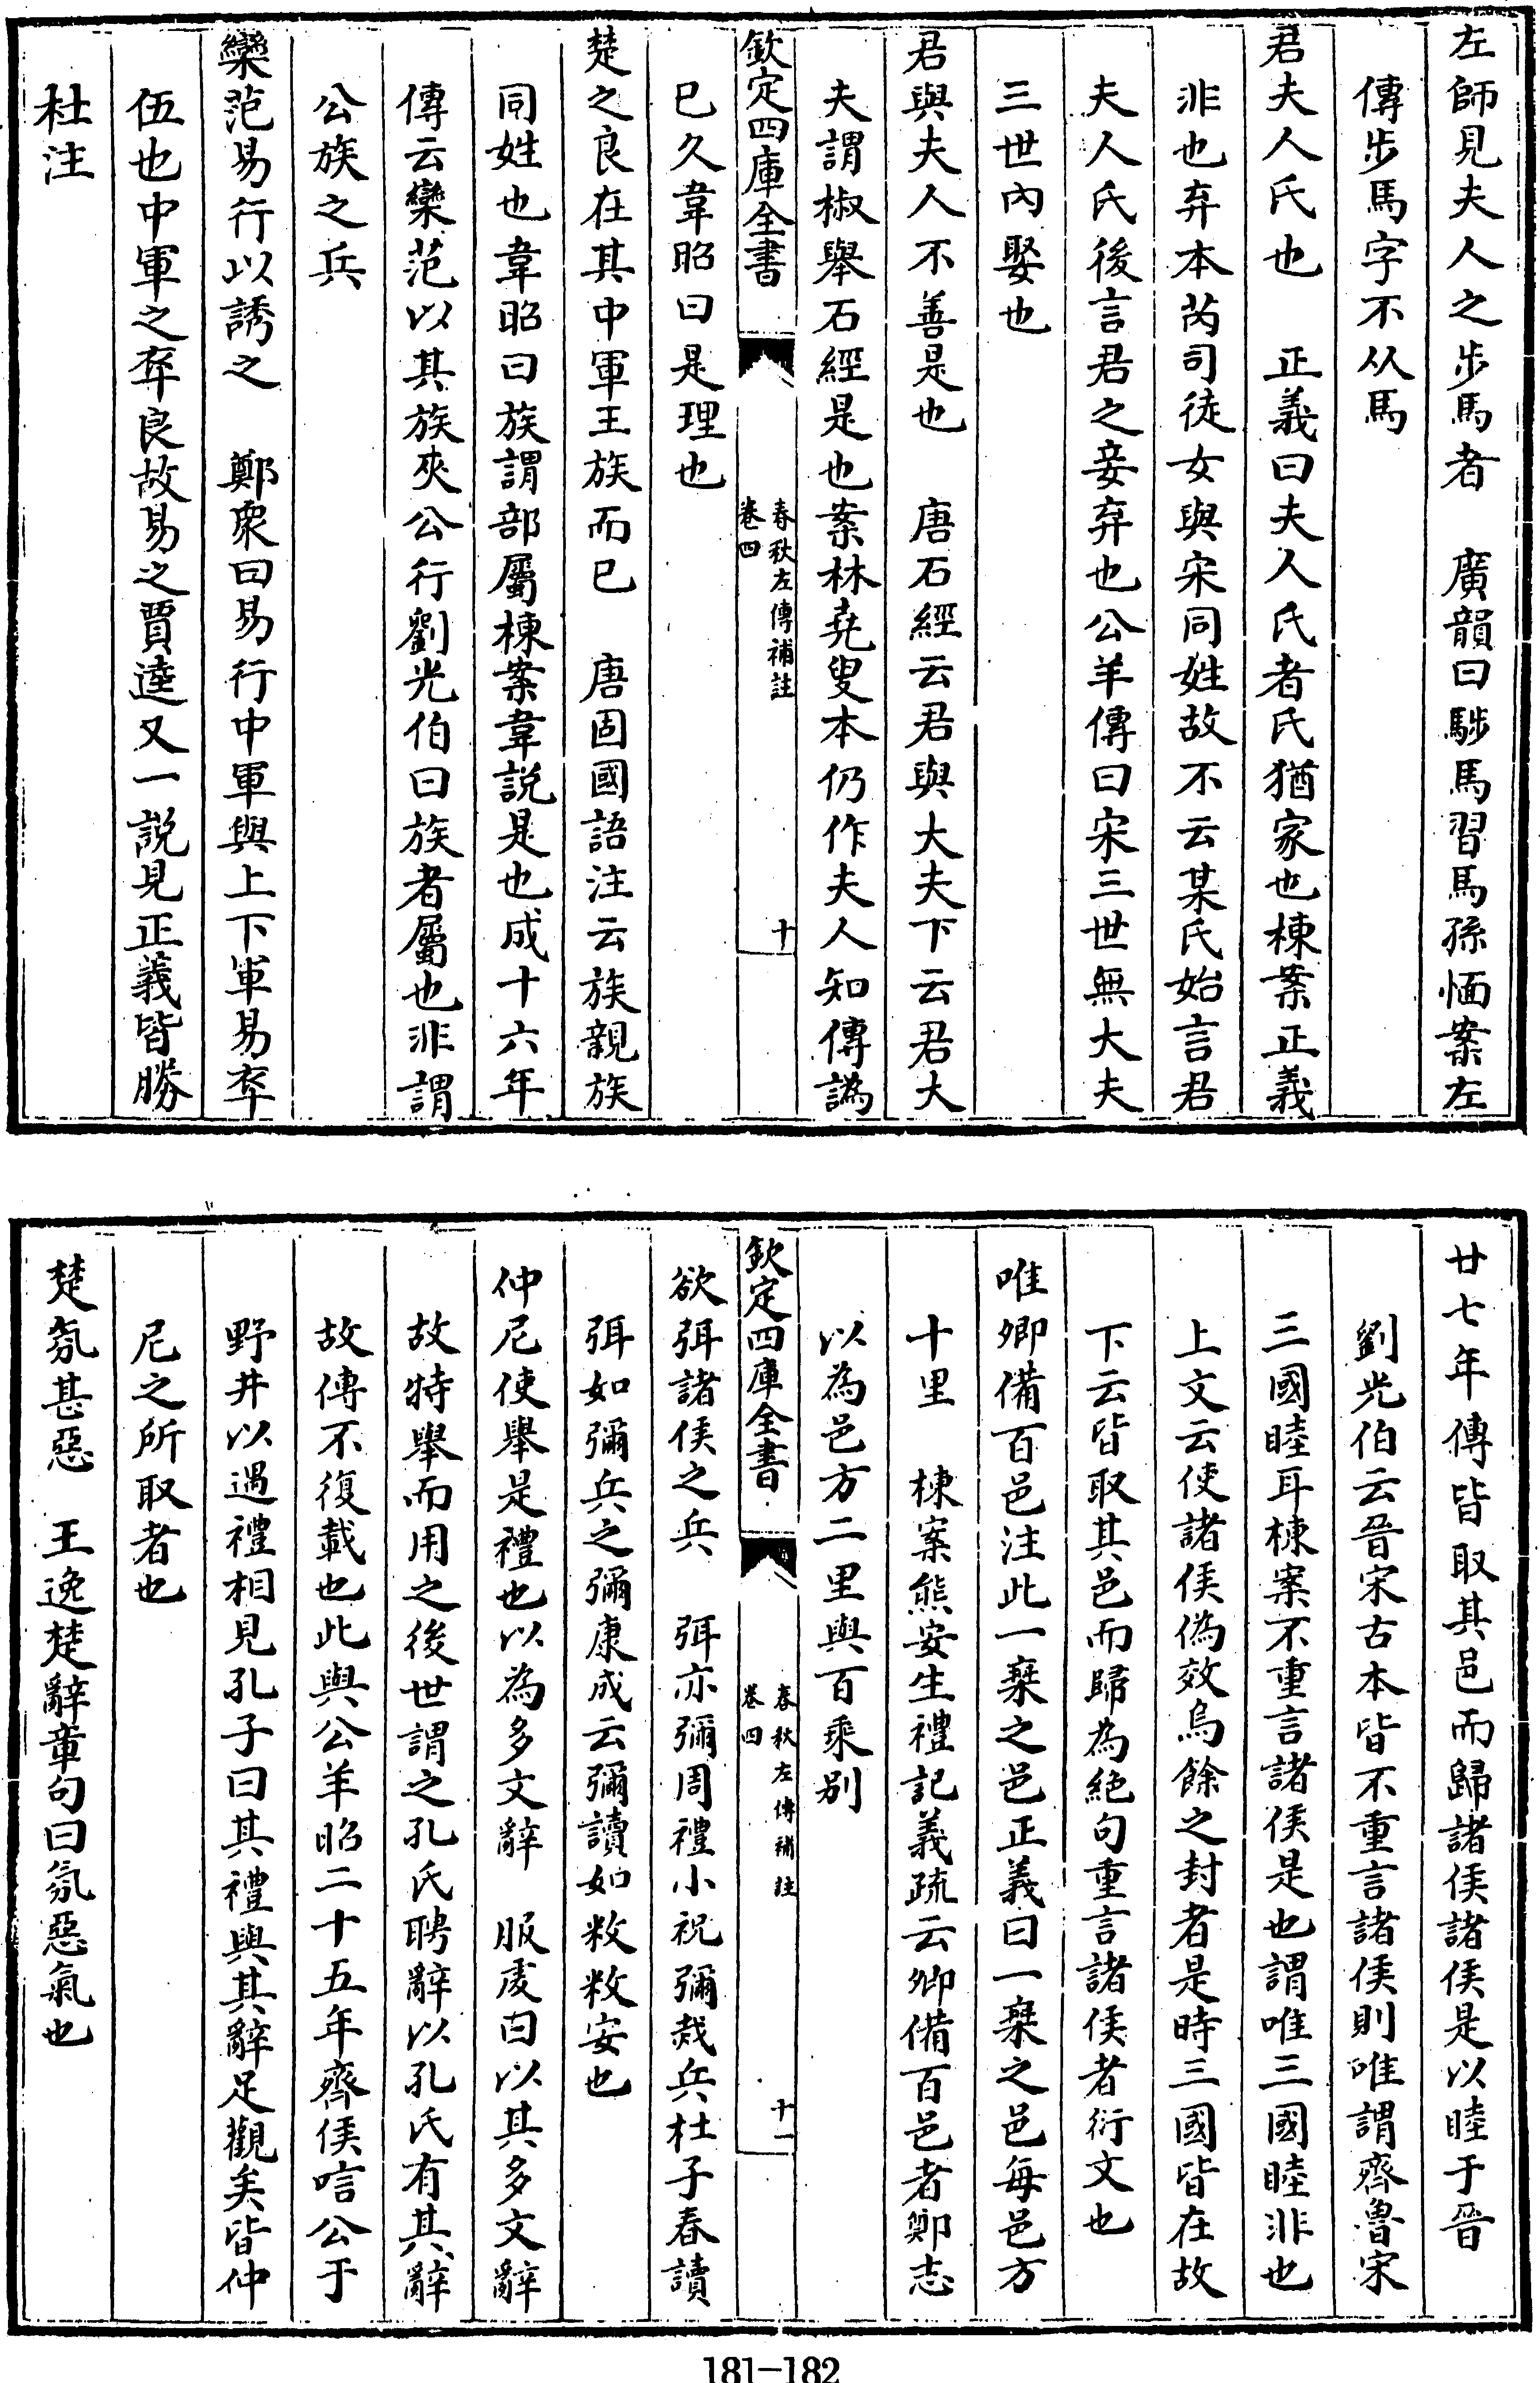 左師見夫人之步馬者　廣韻曰駊馬習馬孫愐案左
傳步馬字不从馬
君夫人氏也　正義曰夫人氏者氏猶家也棟案正義
非也弃本芮司徒女與宋同姓故不云某氏始言君
夫人氏後言君之妾弃也公羊傳曰宋三世無大夫
三世內娶也
君與夫人不善是也　唐石經云君與大夫下云君大
夫謂椒舉石經是也案林堯叟本仍作夫人知傳譌
欽定四庫全書
春秋左傳補註
卷四
十
已久韋昭曰是理也
楚之良在其中軍王族而已　唐固國語注云族親族
同姓也韋昭曰族謂部屬棟案韋説是也成十六年
傳云欒范以其族夾公行劉光伯曰族者屬也非謂
公族之兵
欒范易行以誘之　鄭衆曰易行中軍與上下軍易卒
伍也中軍之卒良故易之賈逵又一説見正義皆勝
杜注
廿七年傳皆取其邑而歸諸侯諸侯是以睦于晉
劉光伯云晉宋古本皆不重言諸侯則唯謂齊魯宋
三國睦耳棟案不重言諸侯是也謂唯三國睦非也
上文云使諸侯偽效烏餘之封者是時三國皆在故
下云皆取其邑而歸為絶句重言諸侯者衍文也
唯卿備百邑注此一椉之邑正義曰一椉之邑每邑方
十里　棟案熊安生禮記義疏云卿備百邑者鄭志
以為邑方二里與百乘别
欽定四庫全書
春秋左傳補註
卷四
十一
欲弭諸侯之兵　弭亦彌周禮小祝彌烖兵杜子春讀
弭如彌兵之彌康成云彌讀如敉敉安也
仲尼使舉是禮也以為多文辭　服虔曰以其多文辭
故特舉而用之後世謂之孔氏聘辭以孔氏有其辭
故傳不復載也此與公羊昭二十五年齊侯唁公于
野井以遇禮相見孔子曰其禮與其辭足觀矣皆仲
尼之所取者也
楚氛甚惡　王逸楚辭章句曰氛惡氣也
181-182